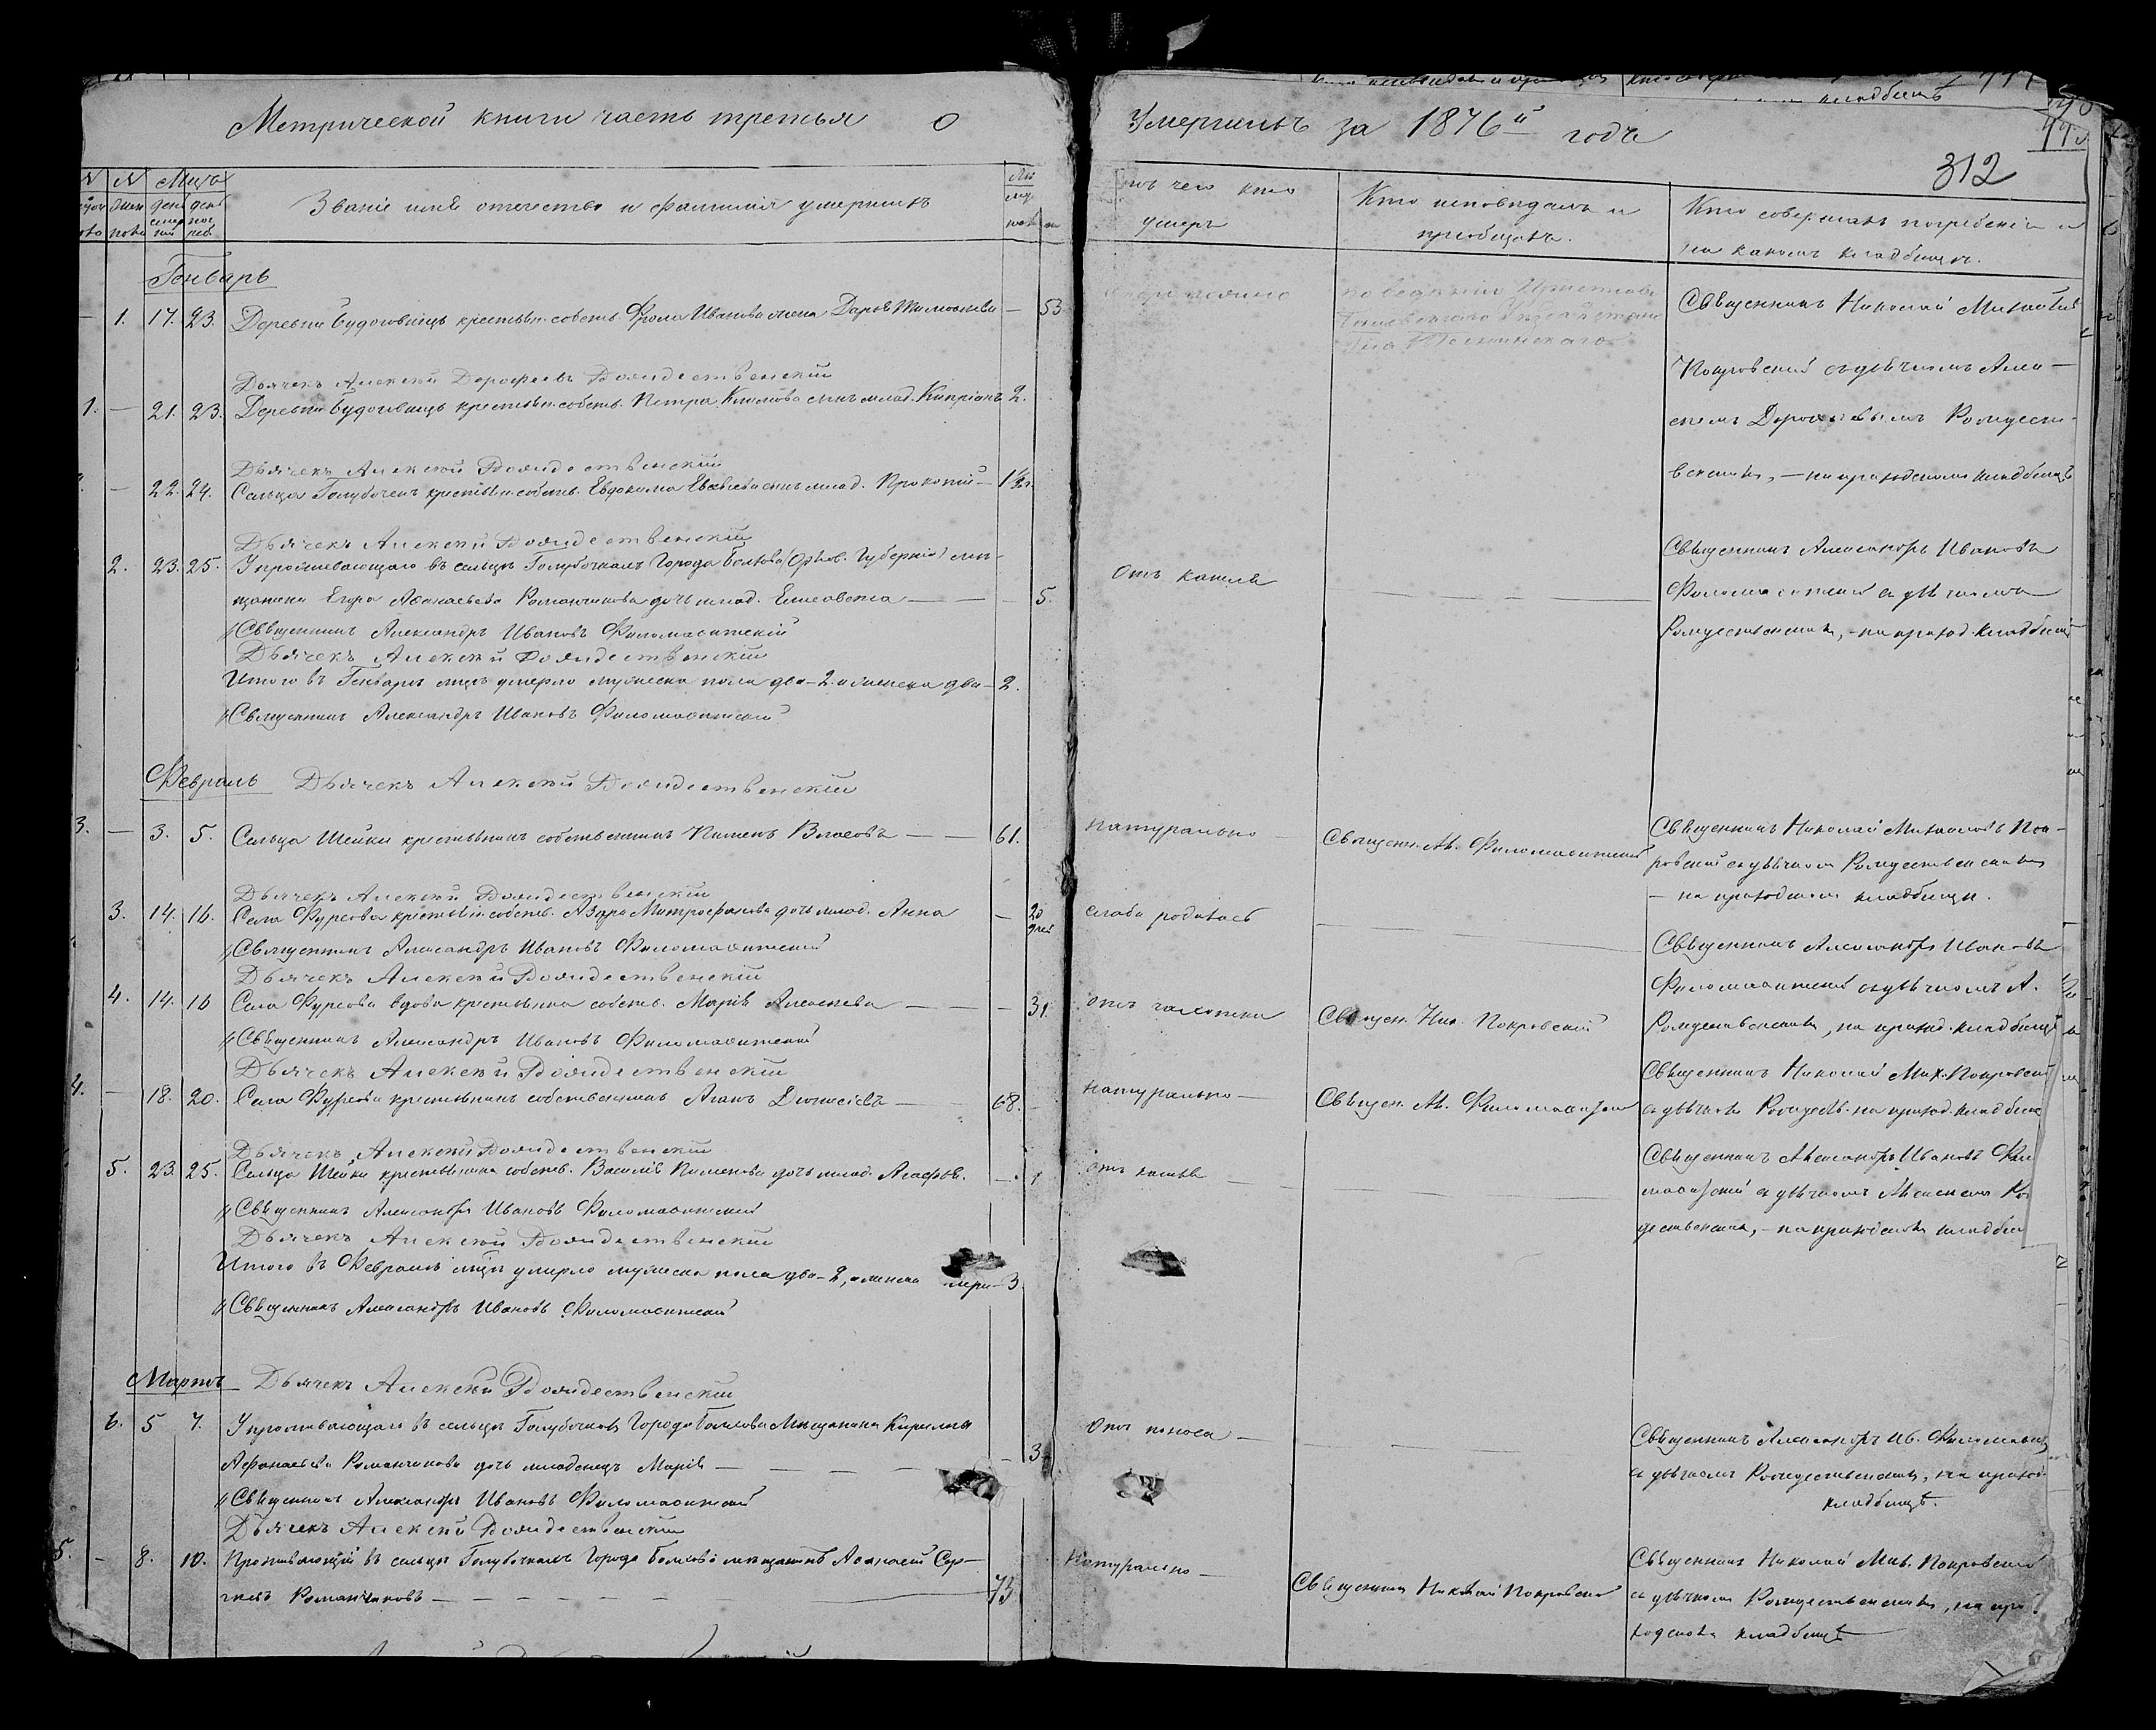 Метрической книги часть третья о
Мѣсяцъ
Званіе имя отечество и фамилія умершихъ
Генварь
1. 17. 23. Деревни Будоговищъ крестьян. собств. Фрола Иванова жена Дарья Тимофеева — 53
Дьячекъ Алексѣй Дорофеевъ Рождественскій
1. — 21. 23. Деревни Будоговищъ крестьян. собств. Петра Климова сынъ млад. Кипріанъ 2.
Дьячекъ Алексѣй Рождественскій
— 22. 24. Сельца Голубоченъ крестьян. собств. Евдокима сынъ млад. Прокопій —
Дьячекъ Алексѣй Рождественскій
2. 23. 25. У проживающаго въ сельцѣ Голубочкахъ Города Болхова (Орлов. Губерніи) мѣ-
щанина Егора Афанасьева Романчикова дочь млад. Елисавета — 5.
Священникъ Александръ Ивановъ Филомафитскій
Дьячекъ Алексѣй Рождественскій
Итого въ Генварѣ мцѣ умерло мужеска пола два – 2. и женска два – 2.
Священникъ Александръ Ивановъ Филомафитскій
Февраль Дьячекъ Алексѣй Рождественскій
3. — 3. 5. Сельца Шейки крестьянинъ собственникъ Пименъ Власовъ — 61.
Дьячекъ Алексѣй Рождественскій
3. 14. 16. Села Фурсова крестьян. собств. Митрофанова дочь млад. Анна — 20 дней
Священникъ Александръ Ивановъ Филомафитскій
Дьячекъ Алексѣй Рождественскій
4. 14. 16 Села Фурсова вдова крестьянка собств. Марія Алексѣева — 31.
Священникъ Александръ Ивановъ Филомафитскій
Дьячекъ Алексѣй Рождественскій
4. — 18. 20. Села Фурсова крестьянинъ собственникъ Діонисіевъ — 68. —
Дьячекъ Алексѣй Рождественскій
5. 23. 25. Сельца Шейки крестьянина собств. Василія Пименова дочь млад. Агафья. — 1
Священникъ Александръ Ивановъ Филомафитскій
Дьячекъ Алексѣй Рождественскій
Итого въ Февралѣ мцѣ умерло мужеска пола два – 2, женска три – 3
Священникъ Александръ Ивановъ Филомафитскій
Мартъ Дьячекъ Алексѣй Рождественскій
6. 5 7. У проживающаго въ сельцѣ Голубочкахъ Города Болхова Мѣщанина Кирилла
Афанасьева Романчикова дочь младенецъ Марія — 3
Священникъ Александръ Ивановъ Филомафитскій
Дьячекъ Алексѣй Рождественскій
5. – 8. 10. Проживающій въ сельцѣ Голубочкахъ Города Болхова мѣщанинъ Афанасій Сер-
гѣевъ Романчиковъ — 73
Умершихъ за 1876й годъ
312
отъ чего кто
умеръ
Кто исповѣдалъ и
пріобщалъ.
Кто совершалъ погребеніе и
на какомъ кладбищѣ.
Священникъ Николай Михайловъ
Покровскій съ дьячкомъ Алек-
сѣемъ Дорофеевымъ Рождест-
венскимъ, – на приходскомъ кладбищѣ
Отъ кашля
Священникъ Александръ Ивановъ
Филомафитскій съ дьячкомъ
Рождественскимъ, – на приход. кладбищѣ
натурально —
Священ. Ал. Филомафитскій
Священникъ Николай Михайловъ Пок-
ровскій съ дьячкомъ Рождественскимъ
– на приходскомъ кладбищѣ.
слабо родилась
Священникъ Александръ Ивановъ
Филомафитскій съ дьячкомъ А.
Рождественскимъ, на приход. кладбищѣ
отъ чахотки
Священ. Ник. Покровскій
натурально —
Священ. Ал. Филомафитскій
Священникъ Николай Мих. Покровскій
съ дьячкомъ Рождеств. на приход. кладбищѣ
отъ кашля
Священникъ Александръ Ивановъ Фило
мафитскій съ дьячкомъ Алексѣемъ Ро
ждественскимъ, – на приходскомъ кладби
Отъ поноса —
Священникъ Александръ Ив. Филомафит
съ дьячкомъ Рождественскимъ, на приход.
кладбищѣ.
Натурально —
Священникъ Николай Покровскій
Священникъ Николай Мих. Покровскій
съ дьячкомъ Рождественскимъ, на при-
ходскомъ кладбищѣ